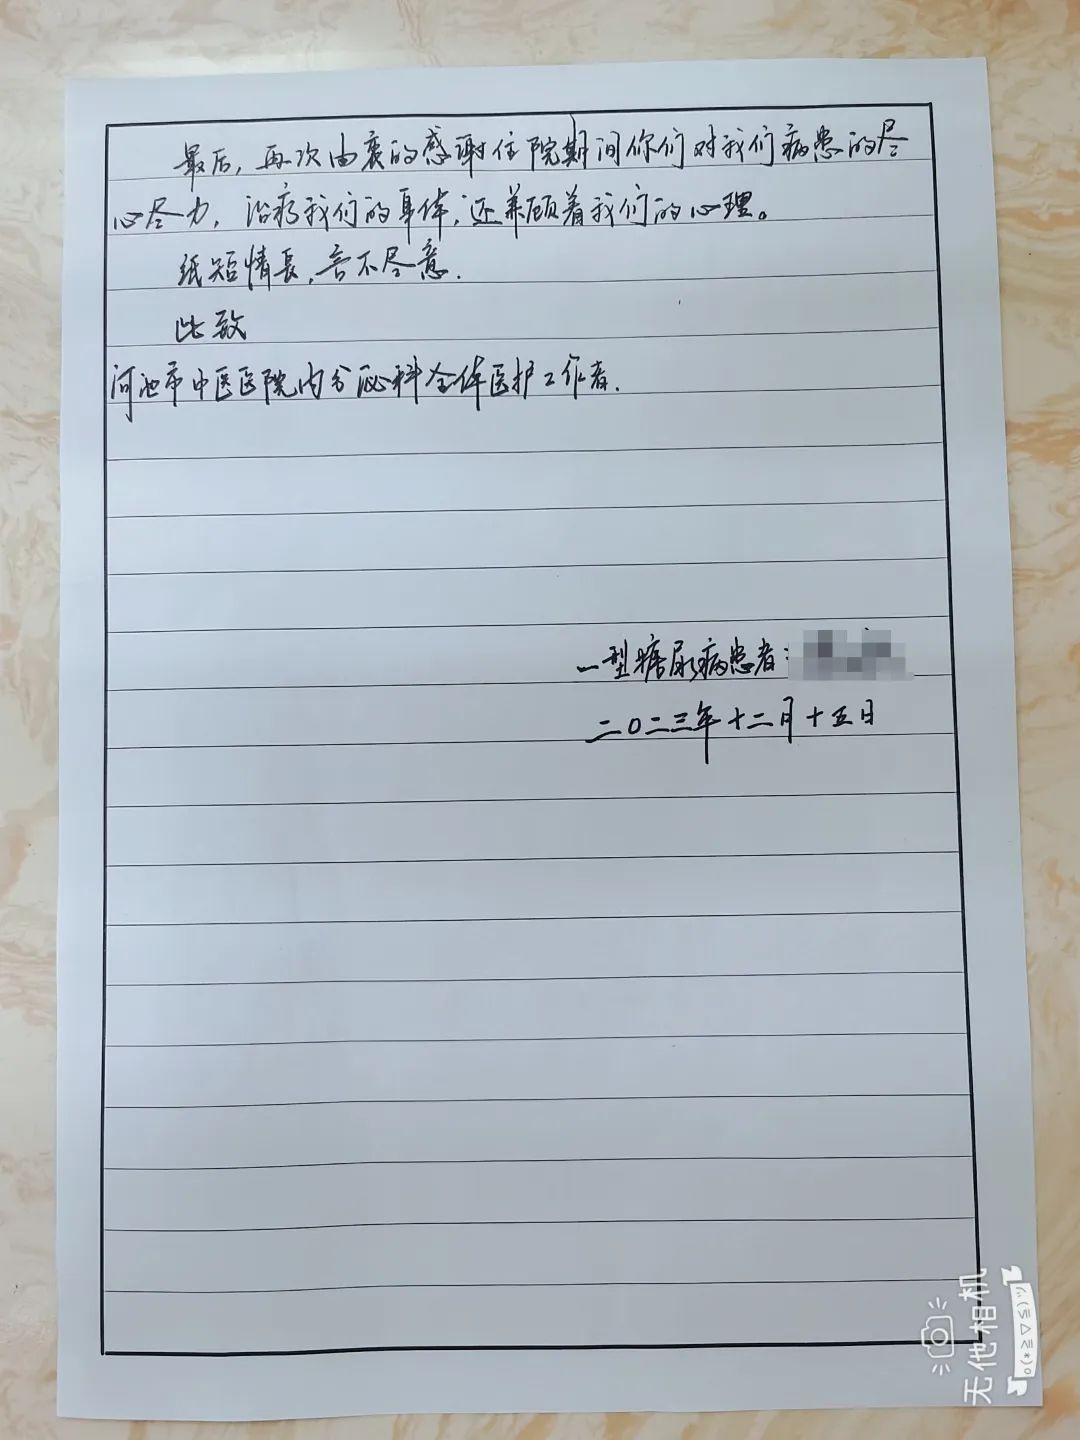 最后，再次由衷的感谢住院期间你们对我们病患的尽
心尽力，治疗我们的身体，还兼顾着我们的心理。
纸短情長，言不尽意.
此致
河池市中医医院内分泌科全体医护工作者.
一型糖尿病患者：
二〇二三年十二月十五日
无他相机